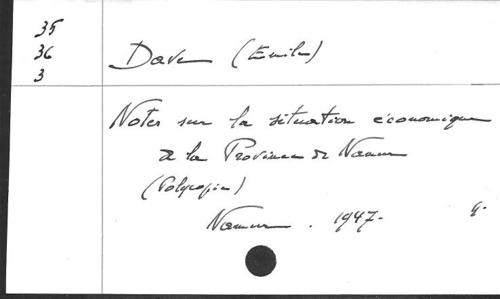 35
36
3
Dave (Emile)
Notes sur la situation économique
de la Province de Namur
(Polycopié)
Namur. 1947.
4.